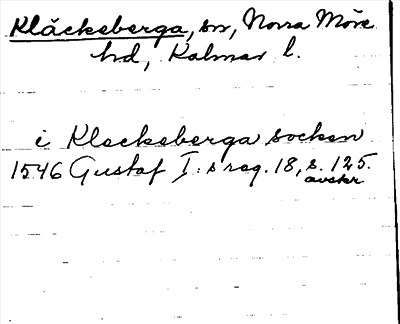 Kläckeberga, sn, Norra Möre
hd, Kalmar l.
i Kleckeberga socken
1546 Gustaf I:s reg. 18, s. 125.
avskr